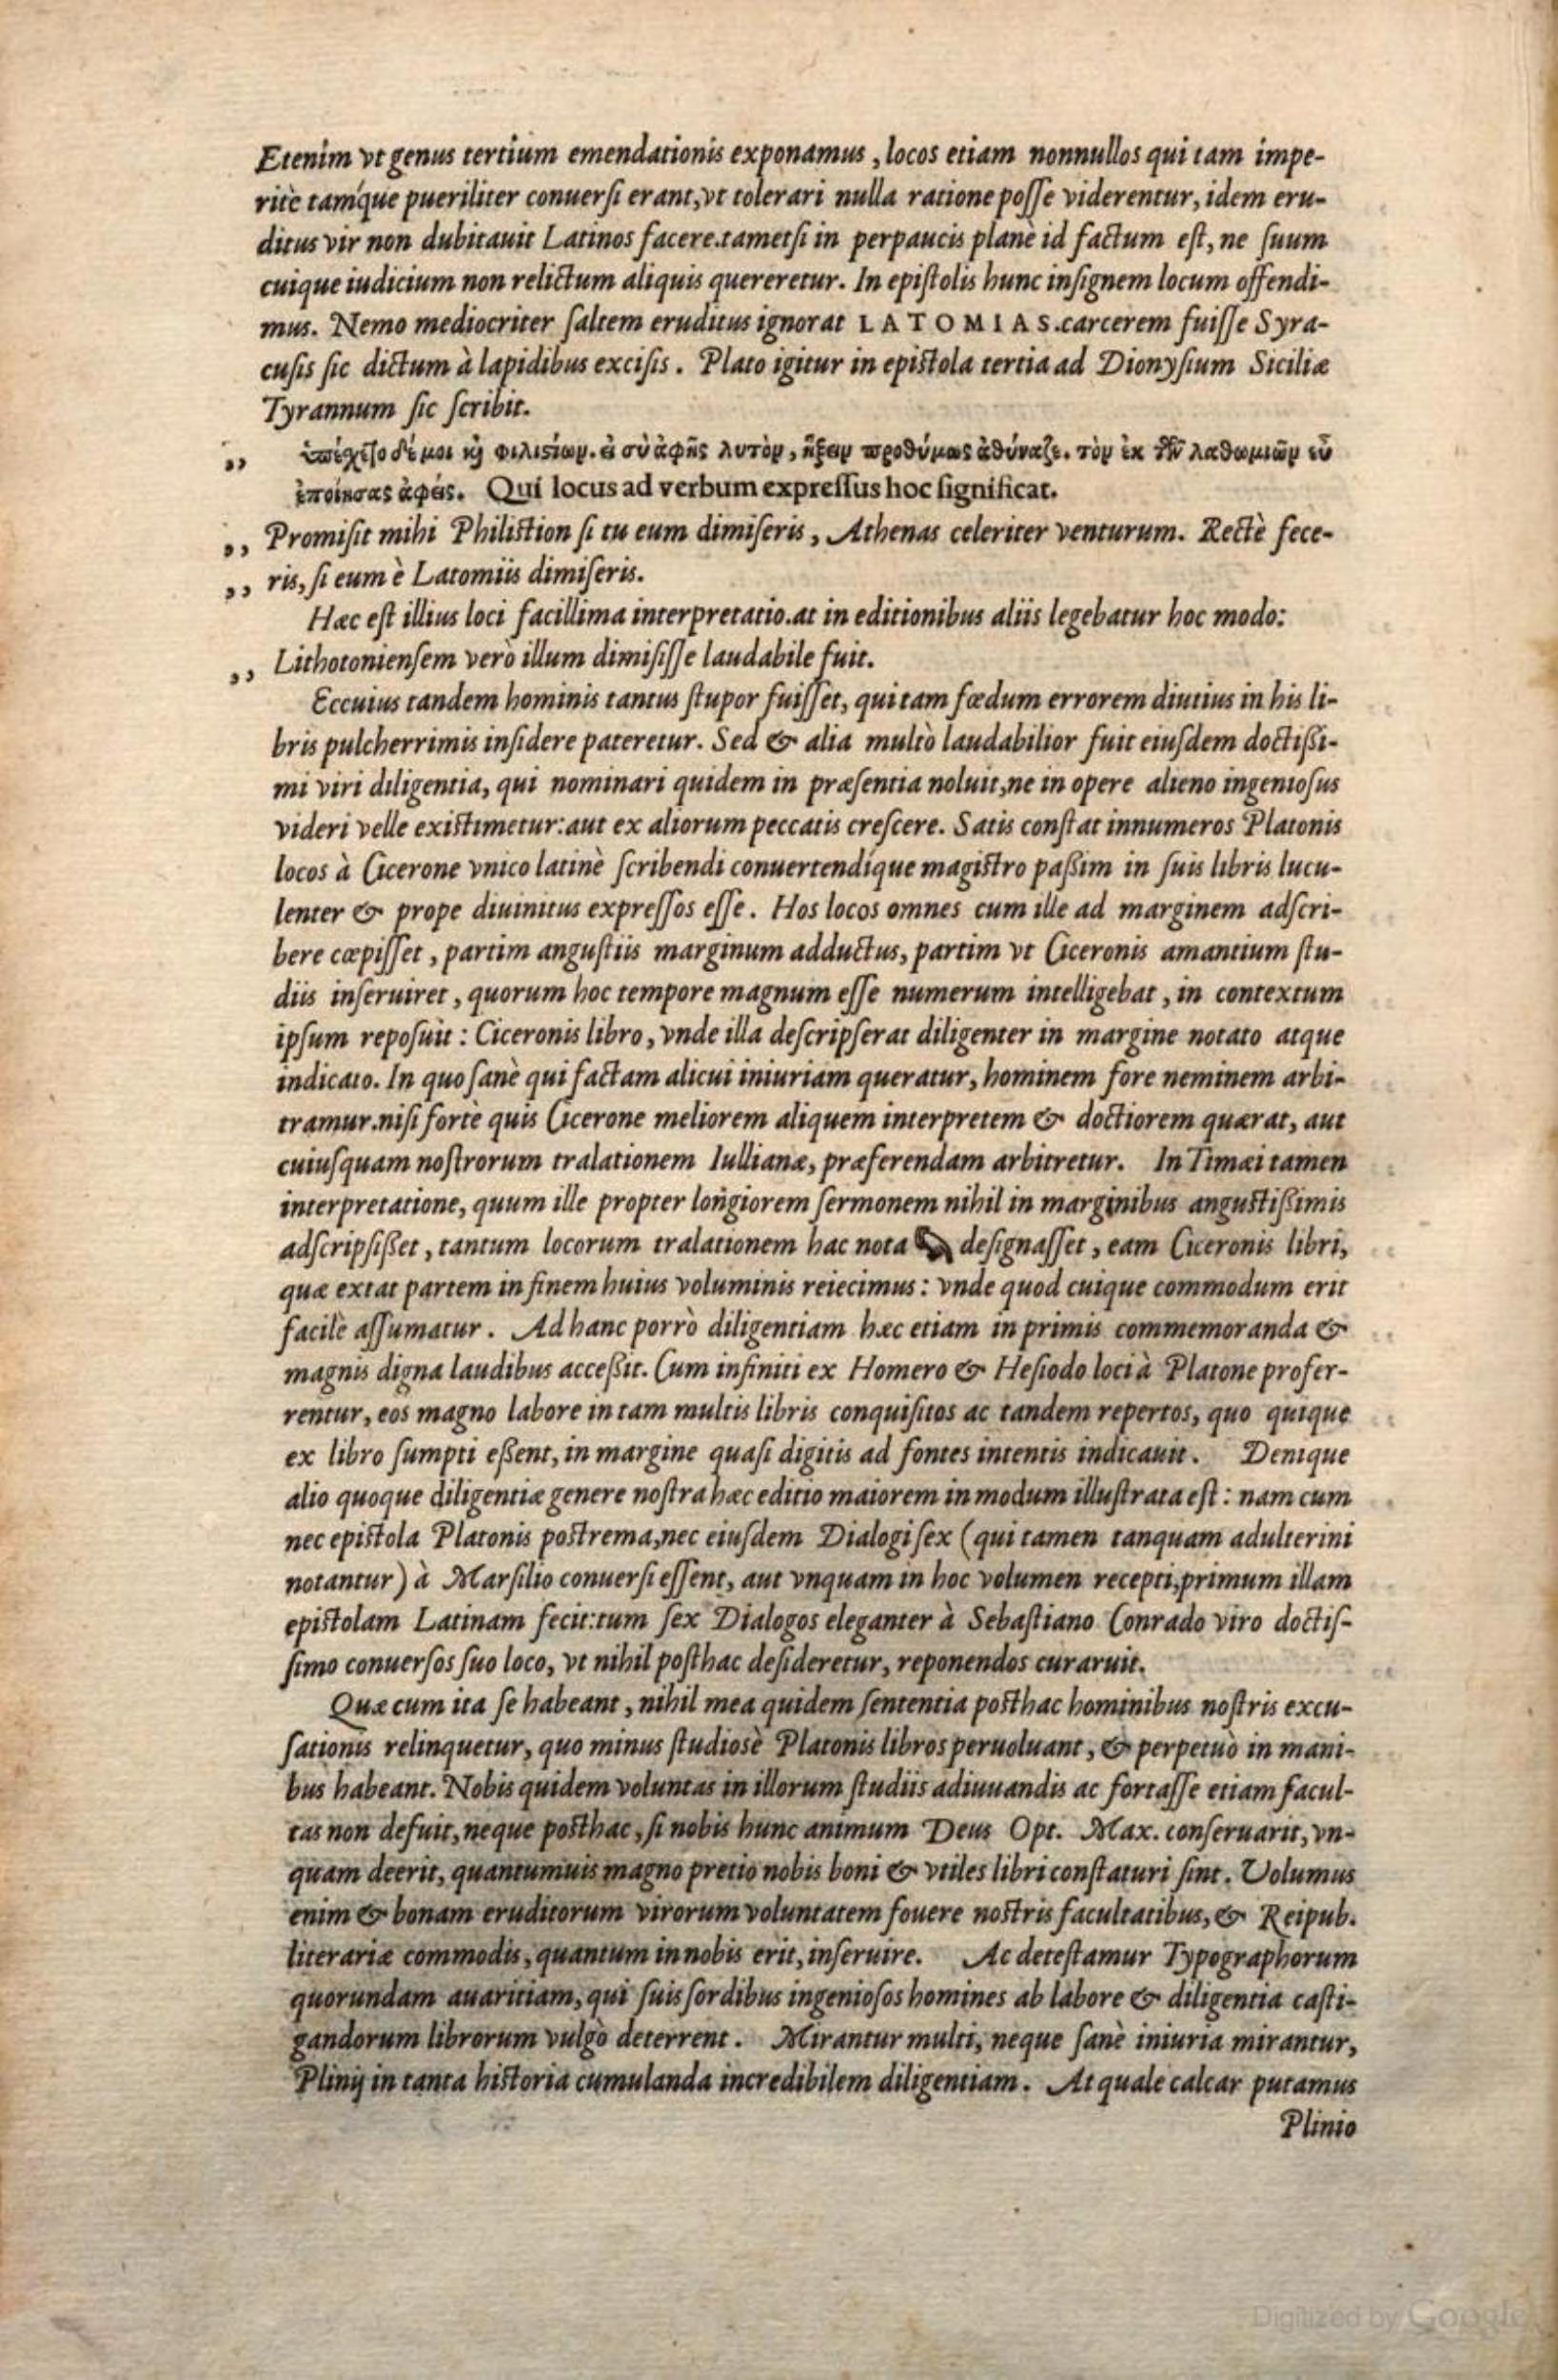 Etenim vt genus tertium emendationis exponamus, locos etiam nonnullos qui tam impe-
ritè tamque pueriliter conuersi erant, vt tolerari nulla ratione posse viderentur, idem eru-
ditus vir non dubitauit Latinos facere.tametsi in perpaucis planè id factum est, ne suum
cuique iudicium non relictum aliquis quereretur. In epistolis hunc insignem locum offendi-
mus. Nemo mediocriter saltem eruditus ignorat LATOMIAS.carcerem fuisse Syra-
cusis sic dictum à lapidibus excisis. Plato igitur in epistola tertia ad Dionysium Siciliæ
Tyrannum sic scribit.
,, δέ μοι κỳ φιλιστίων. εἰ σὺ ἀφῇς αυτὸν, ἥξειν προθύμως ἀθήναζε. τὸν ἐκ τῶν λαθωμιῶν εὖ
ἐποίησας ἀφείς. Qui locus ad verbum expressus hoc significat.
,, Promisit mihi Philistion si tu eum dimiseris, Athenas celeriter venturum. Rectè fece-
,, ris, si eum è Latomiis dimiseris.
Hæc est illius loci facillima interpretatio.at in editionibus aliis legebatur hoc modo:
,, Lithotoniensem verò illum dimisisse laudabile fuit.
Eccuius tandem hominis tantus stupor fuisset, qui tam fœdum errorem diutius in his li-
bris pulcherrimis insidere pateretur. Sed & alia multò laudabilior fuit eiusdem doctissi-
mi viri diligentia, qui nominari quidem in præsentia noluit,ne in opere alieno ingeniosus
videri velle existimetur:aut ex aliorum peccatis crescere. Satis constat innumeros Platonis
locos à Cicerone vnico latinè scribendi conuertendíque magistro passim in suis libris lucu-
lenter & prope diuinitus expressos esse. Hos locos omnes cum ille ad marginem adscri-
bere cœpisset, partim angustiis marginum adductus, partim vt Ciceronis amantium stu-
diis inseruiret, quorum hoc tempore magnum esse numerum intelligebat, in contextum
ipsum reposuit: Ciceronis libro, vnde illa descripserat diligenter in margine notato atque
indicato. In quo sanè qui factam alicui iniuriam queratur, hominem fore neminem arbi-
tramur.nisi fortè quis Cicerone meliorem aliquem interpretem & doctiorem quærat, aut
cuiusquam nostrorum tralationem Iullianæ, præferendam arbitretur. In Timæi tamen
interpretatione, quum ille propter longiorem sermonem nihil in marginibus angustissimis
adscripsisset, tantum locorum tralationem hac nota designasset, eam Ciceronis libri,
quæ extat partem in finem huius voluminis reiecimus: vnde quod cuique commodum erit
facilè assumatur. Ad hanc porrò diligentiam hæc etiam in primis commemoranda &
magnis digna laudibus accessit. Cum infiniti ex Homero & Hesiodo loci à Platone profer-
rentur, eos magno labore in tam multis libris conquisitos ac tandem repertos, quo quique
ex libro sumpti essent, in margine quasi digitis ad fontes intentis indicauit. Denique
alio quoque diligentiæ genere nostra hæc editio maiorem in modum illustrata est: nam cum
nec epistola Platonis postrema,nec eiusdem Dialogi sex (qui tamen tanquam adulterini
notantur) à Marsilio conuersi essent, aut vnquam in hoc volumen recepti,primum illam
epistolam Latinam fecit:tum sex Dialogos eleganter à Sebastiano Conrado viro doctis-
simo conuersos suo loco, vt nihil posthac desideretur, reponendos curaruit.
Quæ cum ita se habeant, nihil mea quidem sententia posthac hominibus nostris excu-
sationis relinquetur, quo minus studiosè Platonis libros peruoluant, & perpetuò in mani-
bus habeant. Nobis quidem voluntas in illorum studiis adiuuandis ac fortasse etiam facul-
tas non defuit, neque posthac, si nobis hunc animum Deus Opt. Max. conseruarit, vn-
quam deerit, quantumuis magno pretio nobis boni & vtiles libri constaturi sint. Volumus
enim & bonam eruditorum virorum voluntatem fouere nostris facultatibus, & Reipub.
literariæ commodis, quantum in nobis erit, inseruire. Ac detestamur Typographorum
quorundam auaritiam, qui suis sordibus ingeniosos homines ab labore & diligentia casti-
gandorum librorum vulgò deterrent. Mirantur multi, neque sanè iniuria mirantur,
Plinij in tanta historia cumulanda incredibilem diligentiam. At quale calcar putamus
Plinio
Digitized by Google